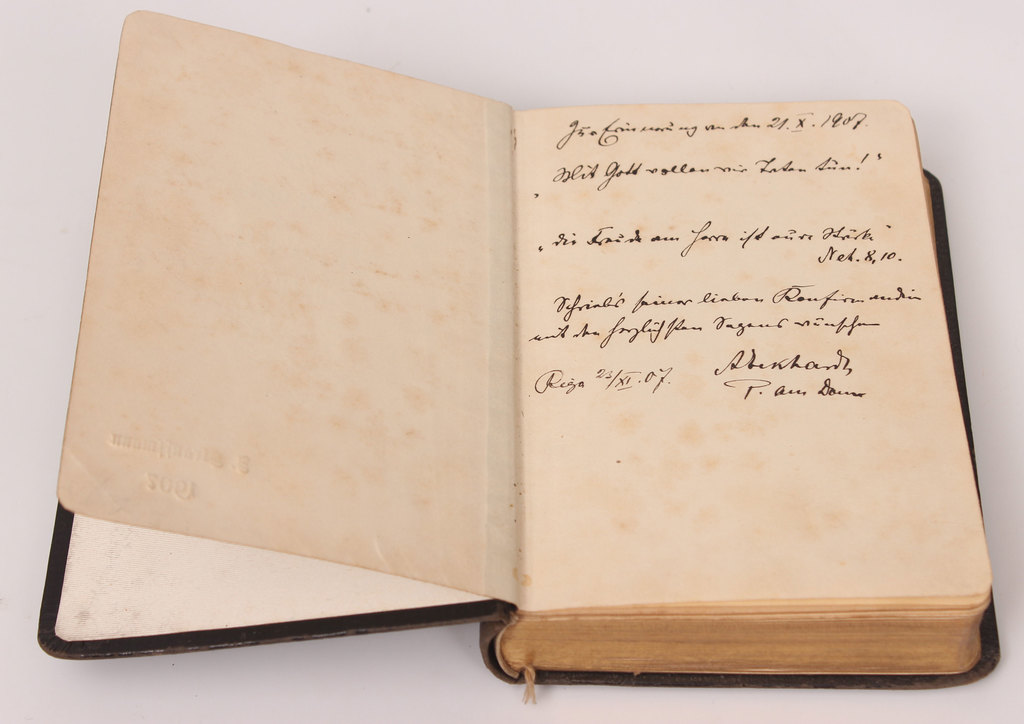 Zur Erinnerung an den 21. X. 1907.
„Mit Gott wollen wir Taten tun!“
„die Freude am Herrn ist eure Stärke“
Neh. 8, 10.
Schrieb's seiner lieben Konfirmandin
mit den herzlichsten Segenswünschen
Riga 23/XI. 07.
P. am Dom
1902